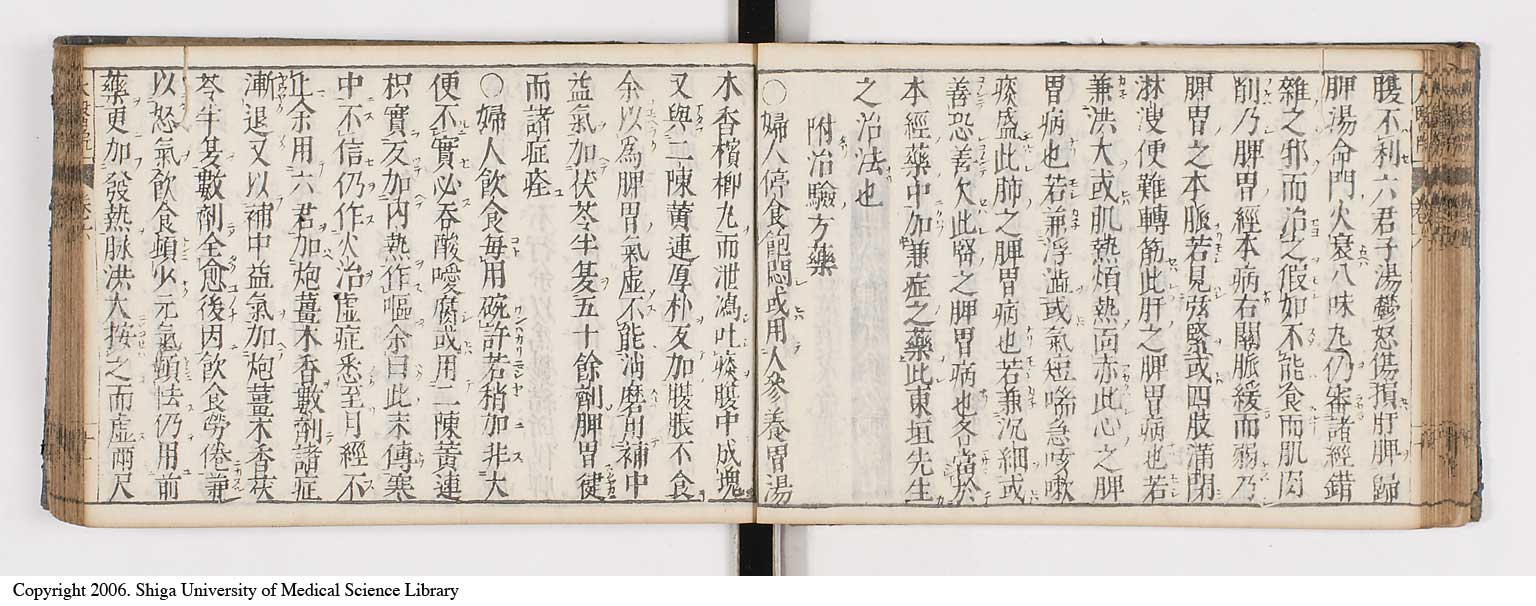 腹不利六君子湯鬱怒傷損肝脾歸
脾湯命門火衰八味丸仍審諸經錯
雜之邪而治之假如不能食而肌肉
削乃脾胃經本病右關脈緩而弱乃
脾胃之本脈若見弦緊或四肢滿閉
淋溲便難轉筋此肝之脾胃病也若
兼洪大或肌熱煩熱面赤此心之脾
胃病也若兼浮澁或氣短喘急咳嗽
痰盛此肺之脾胃病也若兼沉細或
善恐善欠此腎之脾胃病也各當於
本經藥中加兼症之藥此東垣先生
之治法也
附治驗方藥
〇婦人停食飽悶或用人參養胃湯
木香檳榔丸而泄瀉吐痰腹中成塊
又與二陳黃連厚朴反加腹脹不食
余以爲脾胃氣虛不能消磨用補中
益氣加茯苓半夏五十餘劑脾胃健
而諸症痊
〇婦人飲食每用碗許若稍加非大
便不實必吞酸噯腐或用二陳黃連
枳實反加內熱作嘔余曰此末傳寒
中不信仍作火治虛症悉至月經不
止余用六君加炮薑木香數劑諸症
漸退又以補中益氣加炮薑木香茯
苓半夏數劑全愈後因飲食勞倦兼
以怒氣飲食頓少元氣頓怯仍用前
藥更加發熱脉洪大按之而虛兩尺
Copyright 2006. Shiga University of Medical Science Library